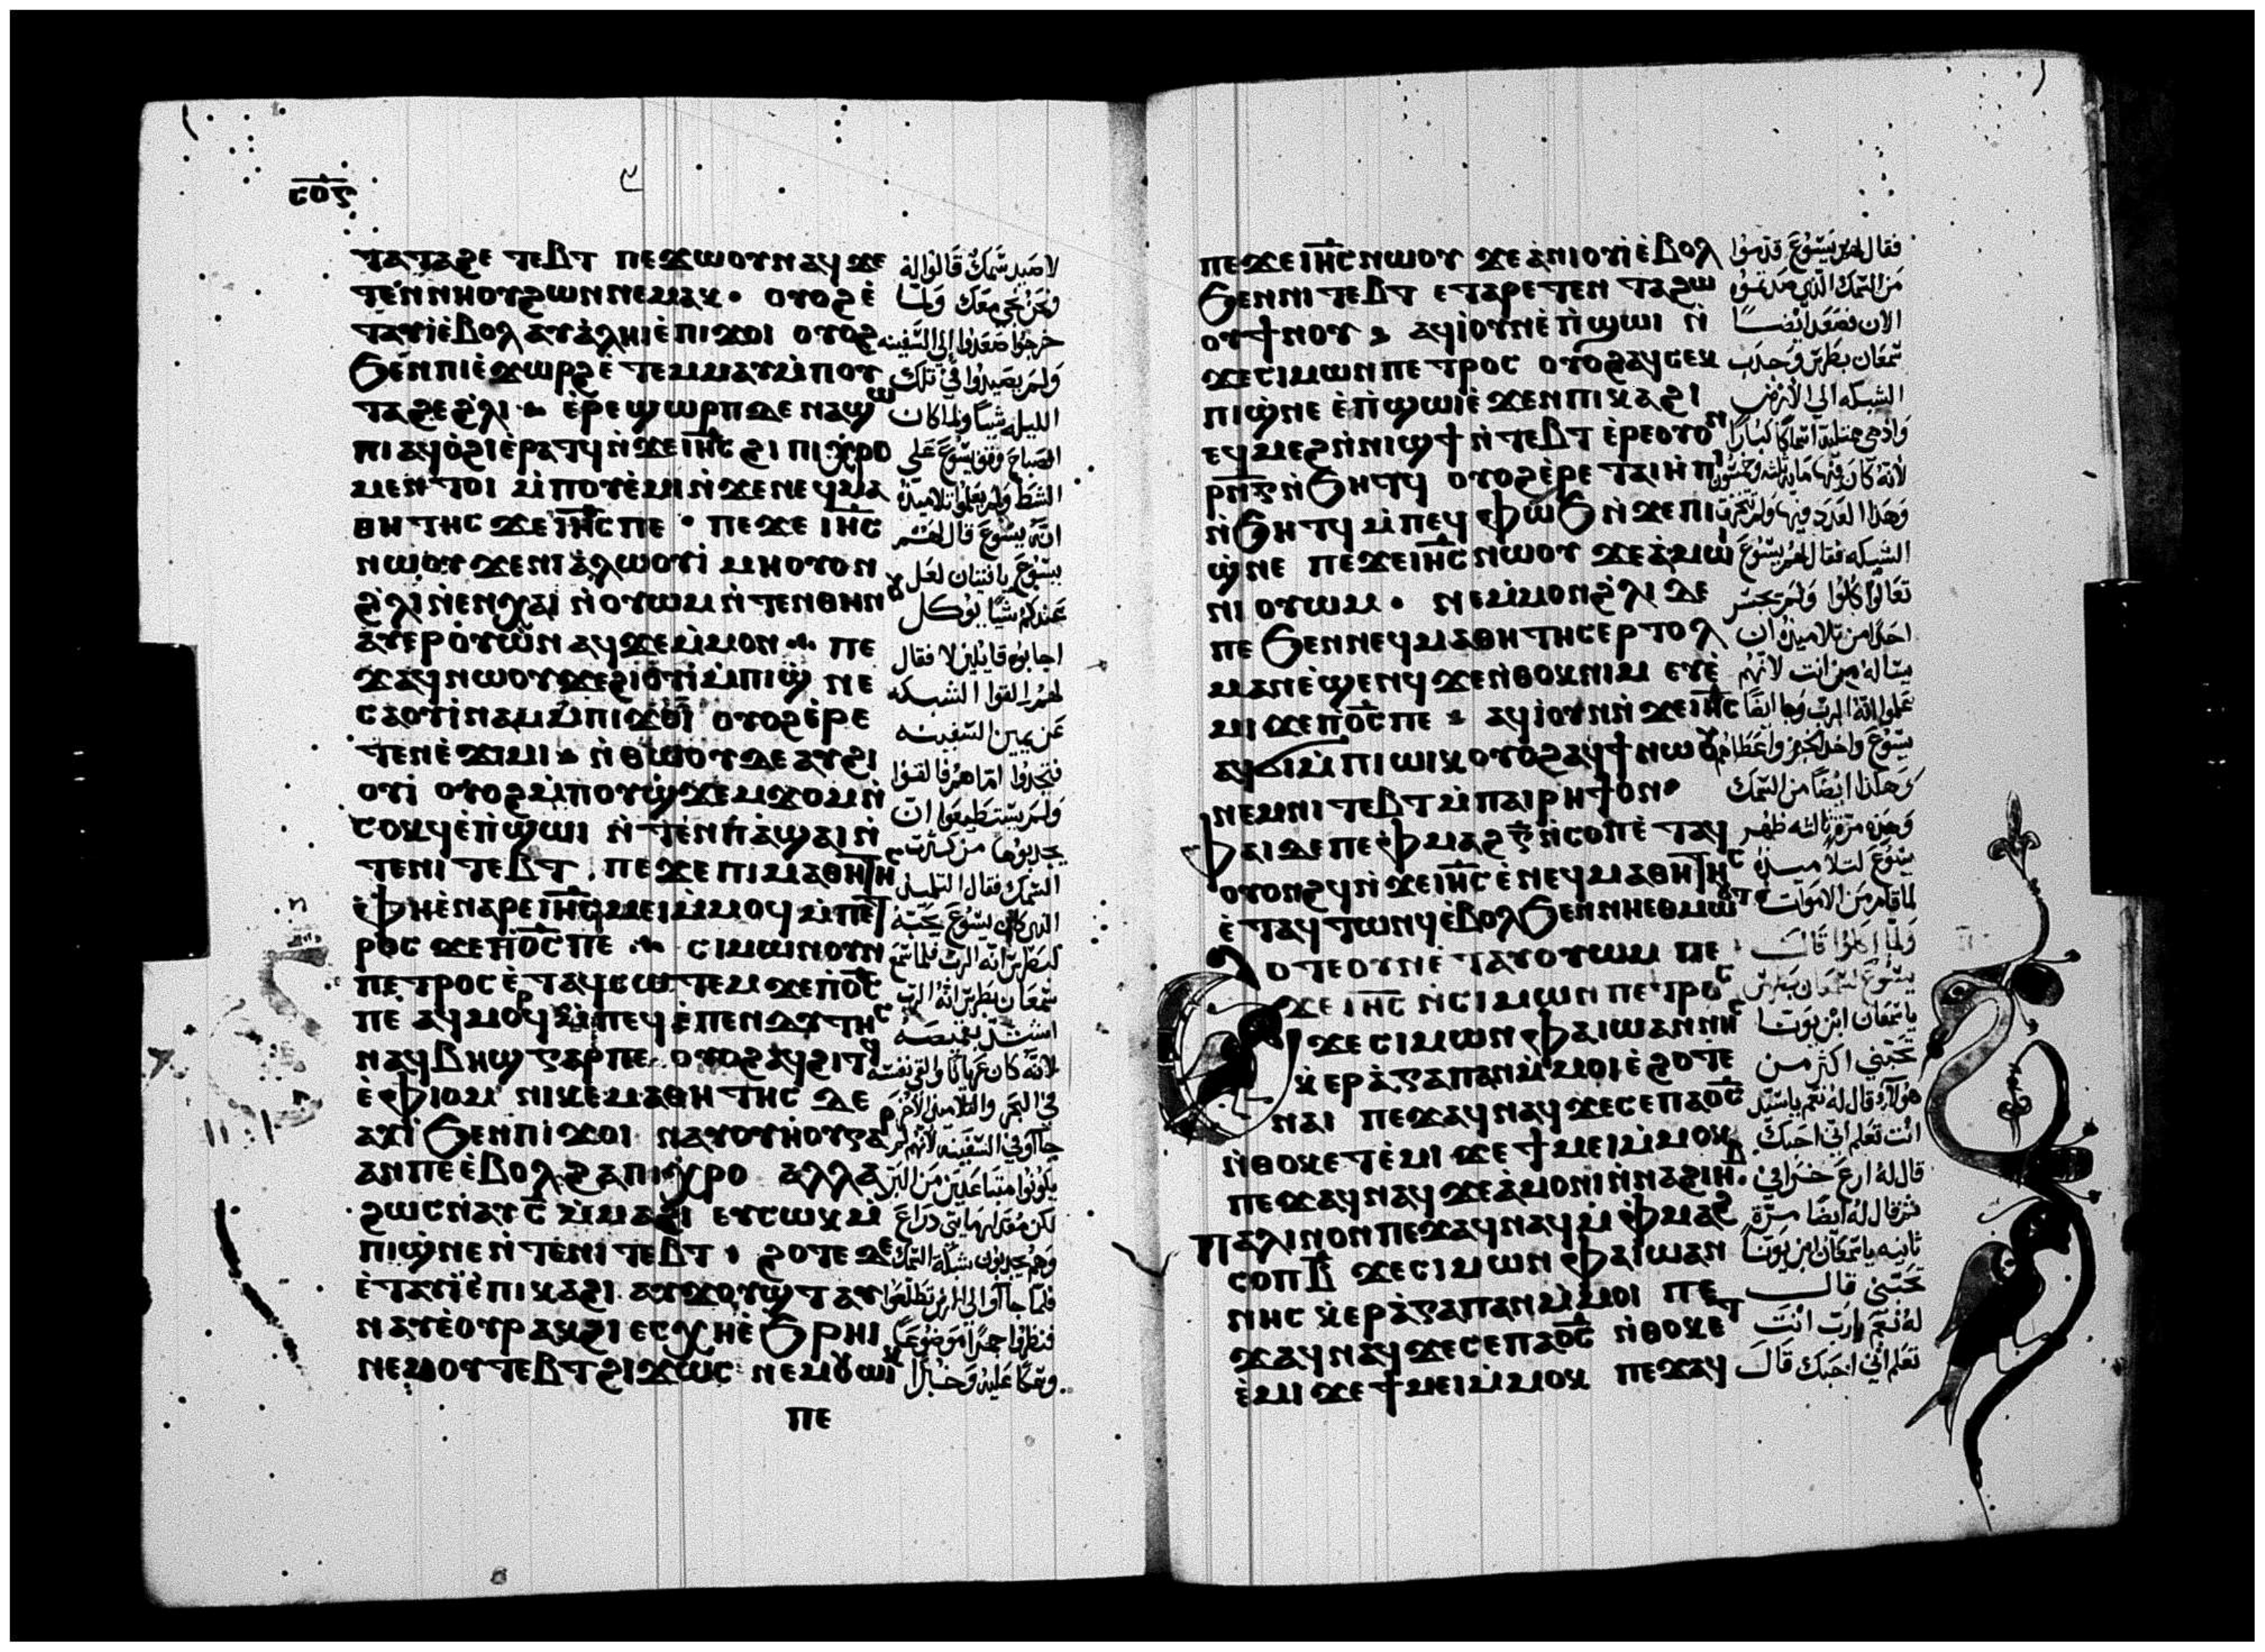 ⲥⲟⲋ
ⲧⲁⲧⲁϩⲉ ⲧⲉⲃⲧ ⲡⲉϫⲱⲟⲩⲛⲁϥϫⲉ
ⲧⲉⲛⲛⲏⲟⲩϩⲱⲛⲛⲉⲙⲁⲕ · ⲟⲩⲟϩⲉ̀
ⲧⲁⲩⲓ̀ⲉ̀ⲃⲟⲗ ⲁⲩⲁ̀ⲗⲏⲓⲉ̀ⲡⲓϫⲟⲓ ⲟⲩⲟϩ
ϧⲉⲛⲡⲓⲉ̀ϫⲱⲣϩⲉ̀ ⲧⲉⲙⲙⲁⲩⲙ̀ⲡⲟⲩ
ⲧⲁϩⲉϩ̀ⲗⲓ ⲉ̀ⲣⲉϣⲱⲣⲡⲇⲉ ⲛⲁϣⲱ
ⲡⲓ ⲁϥⲟ̀ϩⲓⲉ̀ⲣⲁⲧϥⲛ̀ϫⲉⲓⲏ̅ⲥ̅ ϩⲓ ⲡⲓⲭ̀ⲣⲟ
ⲙⲉⲛⲧⲟⲓ ⲙ̀ⲡⲟⲩⲉ̀ⲙⲓⲛ̀ϫⲉⲛⲉϥⲙⲁ
ⲑⲏⲧⲏⲥ ϫⲉⲓⲏ̅ⲥ̅ⲡⲉ · ⲡⲉϫⲉ ⲓⲏ̅ⲥ̅
ⲛⲱⲟⲩ ϫⲉⲛⲓⲁ̀ⲗⲱⲟⲩⲓ̀ ⲙⲏⲟⲩⲟⲛ
ϩ̀ⲗⲓⲛ̀ⲉⲛⲭⲁⲓ ⲛ̀ⲟⲩⲱⲙ ⲛ̀ⲧⲉⲛⲑⲏⲛⲟⲩ
ⲁⲩⲉⲣⲟ̀ⲩⲱ̀ⲛⲁϥϫⲉⲙ̀ⲙⲟⲛ ⲡⲉ
ϫⲁϥⲛⲱⲟⲩϫⲉϩⲓⲟⲩⲓ̀ⲙ̀ⲡⲓϣ̀ⲛⲉ
ⲥⲁⲟⲩⲓ̀ⲛⲁⲙⲙ̀ⲡⲓϫⲟⲓ ⲟⲩⲟϩⲉ̀ⲣⲉ
ⲧⲉⲛⲉ̀ϫⲓⲙⲓ ⲛ̀ⲑⲱⲟⲩⲇⲉ ⲁⲩϩⲓ
ⲟⲩⲓ̀ ⲟⲩⲟϩⲙ̀ⲡⲟⲩϣ̀ϫⲉⲙϫⲟⲙⲛ̀
ⲥⲟⲕϥⲉ̀ⲡ̀ϣⲱⲓ ⲛ̀ⲧⲉⲛⲡ̀ⲁ̀ϣⲁⲓⲛ̀
ⲧⲉⲛⲓⲧⲉⲃⲧ ⲡⲉϫⲉ ⲡⲓⲙⲁⲑⲏⲧⲏⲥ
ⲉⲫⲏⲉ̀ⲛⲁⲣⲉⲓⲏ̅ⲥ̅ⲙⲉⲓⲙ̀ⲙⲟϥ ⲙ̀ⲡⲉⲧ
ⲣⲟⲥ ϫⲉⲡ̀ⲟ̅ⲥ̅ⲡⲉ ⲥⲓⲙⲱⲛⲟⲩⲛ
ⲡⲉⲧⲣⲟⲥ ⲉ̀ⲧⲁϥⲥⲱⲧⲉⲙ ϫⲉⲡ̀ⲟ̅ⲥ̅
ⲡⲉ ⲁϥⲙⲟⲣϥ ⲙ̀ⲡⲉϥⲉ̀ⲡⲉⲛⲇⲩⲧⲏⲥ
ⲛⲁϥⲃⲏϣ ⲅⲁⲣⲡⲉ ⲟⲩⲟϩⲁϥϩⲓⲧϥ
ⲉ̀ⲫⲓⲟⲙ ⲛⲓⲕⲉⲙⲁⲑⲏⲧⲏⲥ ⲇⲉ
ⲁⲩⲓ̀ ϧⲉⲛⲡⲓϫⲟⲓ ⲛⲁⲩⲟⲩⲏⲟⲩⲅⲁⲣ
ⲁⲛⲡⲉ ⲉ̀ⲃⲟⲗϩⲁⲡⲓⲭ̀ⲣⲟ ⲁⲗⲗⲁ
ϩⲱⲥⲛⲁⲩ ⲥ̅ ⲙ̀ⲙⲁϩⲓ ⲉⲩⲥⲱⲕⲙ̀
ⲡⲓϣ̀ⲛⲉⲛ̀ⲧⲉⲛⲓⲧⲉⲃⲧ · ϩⲟⲧⲉⲇⲉ
ⲉ̀ⲧⲁⲩⲓ̀ⲉ̀ⲡⲓⲕⲁϩⲓ ⲁⲩϫⲟⲩϣⲧ ⲁⲩ
ⲛⲁⲩⲉ̀ⲟⲩⲣⲁⲕϩⲓ ⲉⲥⲭⲏⲉ̀ϧⲣⲏⲓ
ⲛⲉⲙⲟⲩⲧⲉⲃⲧϩⲓϫⲱⲥ ⲛⲉⲙⲟⲩⲱⲓⲕ
ⲡⲉ
لا صيد سمك قالوا له
ونحن نجي معك ولما
خرجوا صعدوا إلي السفينه
ولم يصيدوا في تلك
الليله شيا ولما كان
الصباح وقف يسوع علي
الشط ولم يعلموا تلاميذه
انه يسوع قال لهم
يسوع يا فتيان لعل
عندكم شيا يوكل
اجابوه قايلين لا فقال
لهم القوا الشبكه
عن يمين السفينه
فتجدوا اما هم فالقوا
ولم يستطيعوا ان
يجذبوها من كثرت
السمك فقال التلميذ
الذي كان يسوع يحبه
لبطرس انه الرب فلما سمع
سمعان بطرس انه الرب
اشتد بقميصه
لانه كان عريانا والقي نفسه
في البحر والتلاميذ الاخر
جااوا في السفينه لانهم لم
يكونوا متباعدين من البر
لكن مقدارمايتي ذراع
وهم يجذبون شبكة السمك
فلما جااوا الي الارض تطلعوا
فنظروا جمرا موضوعا
وسمكا عليه وخبزا
ⲡⲉϫⲉⲓⲏ̅ⲥ̅ⲛⲱⲟⲩ ϫⲉⲁ̀ⲛⲓⲟⲩⲓ̀ⲉ̀ⲃⲟⲗ
ϧⲉⲛⲛⲓⲧⲉⲃⲧ ⲉⲧⲁⲣⲉⲧⲉⲛ ⲧⲁϩⲱ
ⲟⲩϯⲛⲟⲩ ⲁϥⲓ̀ⲟⲩⲛⲉ̀ⲡ̀ϣⲱⲓ ⲛ̀
ϫⲉⲥⲓⲙⲱⲛⲡⲉⲧⲣⲟⲥ ⲟⲩⲟϩⲁϥⲥⲉⲕ
ⲡⲓϣ̀ⲛⲉ ⲉ̀ⲡ̀ϣⲱⲓⲉ̀ϫⲉⲛⲡⲓⲕⲁϩⲓ
ⲉϥⲙⲉϩⲛ̀ⲛⲓϣϯ ⲛ̀ⲧⲉⲃⲧ ⲉ̀ⲣⲉⲟⲩⲟⲛ
ⲣ̅ⲛ̅ⲅ̅ⲛ̀ϧⲏⲧϥ ⲟⲩⲟϩⲉ̀ⲣⲉ ⲧⲁⲓⲏ̀ⲡⲓ
ⲛ̀ϧⲏⲧϥ ⲙ̀ⲡⲉϥⲫⲱϧ ⲛ̀ϫⲉⲡⲓ
ϣ̀ⲛⲉ ⲡⲉϫⲉⲓⲏ̅ⲥ̅ⲛⲱⲟⲩ ϫⲉⲁ̀ⲙⲱⲓ
ⲛⲓ ⲟⲩⲱⲙ · ⲛⲉⲙ̀ⲙⲟⲛϩ̀ⲗⲓ ⲇⲉ
ⲡⲉ ϧⲉⲛⲛⲉϥⲙⲁⲑⲏⲧⲏⲥⲉⲣⲧⲟⲗ
ⲙⲁⲛⲉ̀ϣⲉⲛϥ ϫⲉⲛ̀ⲑⲟⲕⲛⲓⲙ ⲉⲩⲉ̀
ⲙⲓ ϫⲉⲡ̀ⲟ̅ⲥ̅ⲡⲉ ⲁϥⲓ̀ⲟⲩⲛⲛ̀ϫⲉⲓⲏ̅ⲥ̅
ⲁϥϭⲓⲙ̀ⲡⲓⲱⲓⲕ ⲟⲩⲟϩⲁϥϯⲛⲱⲟⲩ
ⲛⲉⲙⲛⲓⲧⲉⲃⲧⲙ̀ⲡⲁⲓⲣⲏϯⲟⲛ
ⲫⲁⲓⲇⲉⲡⲉⲫⲙⲁϩ ⲅ̅ ⲛ̀ⲥⲟⲡⲉ̀ⲧⲁϥ
ⲟⲩⲟⲛϩϥⲛ̀ϫⲉⲓⲏ̅ⲥ̅ ⲉ̀ⲛⲉϥⲙⲁⲑⲏⲧⲏⲥ
ⲉ̀ⲧⲁϥⲧⲱⲛϥⲉ̀ⲃⲟⲗϧⲉⲛⲛⲏⲉⲑⲙⲱⲟⲩⲧ
ϩⲟⲧⲉⲟⲩⲛⲉ̀ⲧⲁⲩⲟⲩⲱⲙ ⲡⲉ
ϫⲉ ⲓⲏ̅ⲥ̅ ⲛ̀ⲥⲓⲙⲱⲛ ⲡⲉⲧⲣⲟⲥ
ϫⲉ ⲥⲓⲙⲱⲛ ⲫⲁⲓⲱⲁⲛⲛⲏⲥ
ⲭ̀ⲉⲣⲁ̀ⲅⲁⲡⲁⲛⲙ̀ⲙⲟⲓⲉ̀ϩⲟⲧⲉ
ⲛⲁⲓ ⲡⲉϫⲁϥⲛⲁϥ ϫⲉⲥⲉⲡⲁⲟ̅ⲥ̅
ⲛ̀ⲑⲟⲕⲉⲧⲉ̀ⲙⲓ ϫⲉϯⲙⲉⲓⲙ̀ⲙⲟⲕ
ⲡⲉϫⲁϥⲛⲁϥ ϫⲉⲁ̀ⲙⲟⲛⲓⲛ̀ⲛⲁϩⲓⲏⲃ
ⲡⲁⲗⲓⲛⲟⲛⲡⲉϫⲁϥⲛⲁϥⲙ̀ⲫⲙⲁϩ
ⲥⲟⲡⲃ̅ ϫⲉⲥⲓⲙⲱⲛ ⲫⲁⲓⲱⲁⲛ
ⲛⲏⲥ ⲭ̀ⲉⲣⲁ̀ⲅⲁⲡⲁⲛⲙ̀ⲙⲟⲓ ⲡⲉ
ϫⲁϥⲛⲁϥϫⲉⲥⲉⲡⲁⲟ̅ⲥ̅ ⲛ̀ⲑⲟⲕⲉⲧ
ⲉ̀ⲙⲓ ϫⲉϯⲙⲉⲓⲙ̀ⲙⲟⲕ ⲡⲉϫⲁϥ
فقال لهم يسوع قدموا
من السمك الذي صدتموه
الان فصعد ايضا
سمعان بطرس وجذب
الشبكه الي الارض
واذهي ممتليه اسماكا كبارا
لانه كان فيها مايه ثلثه وخمسون
وهذا العدد فيها ولم تتخرق
الشبكه فقال لهم يسوع
تعالوا كلوا ولم يجسر
احدا من تلاميذه ان
يساله من انت لانهم
علموا انه الرب وجا ايضا
يسوع واخذ الخبز واعطاهم
وهكذا ايضا من السمك
وهذه مرة ثالثه ظهر
يسوع لتلاميذه
لما قام من الاموات
ولما اكلوا قال
يسوع لسمعان بطرس
يا سمعان ابن يونا
تحبني اكثر من
هولاء قال له نعم ياسيد
انت تعلم اني احبك
قال له ارع خرافي
ثم قال له ايضا مرة
ثانيه ياسمعان ابن يونا
تحبني قال
له نعم يارب انت
تعلم اني احبك قال